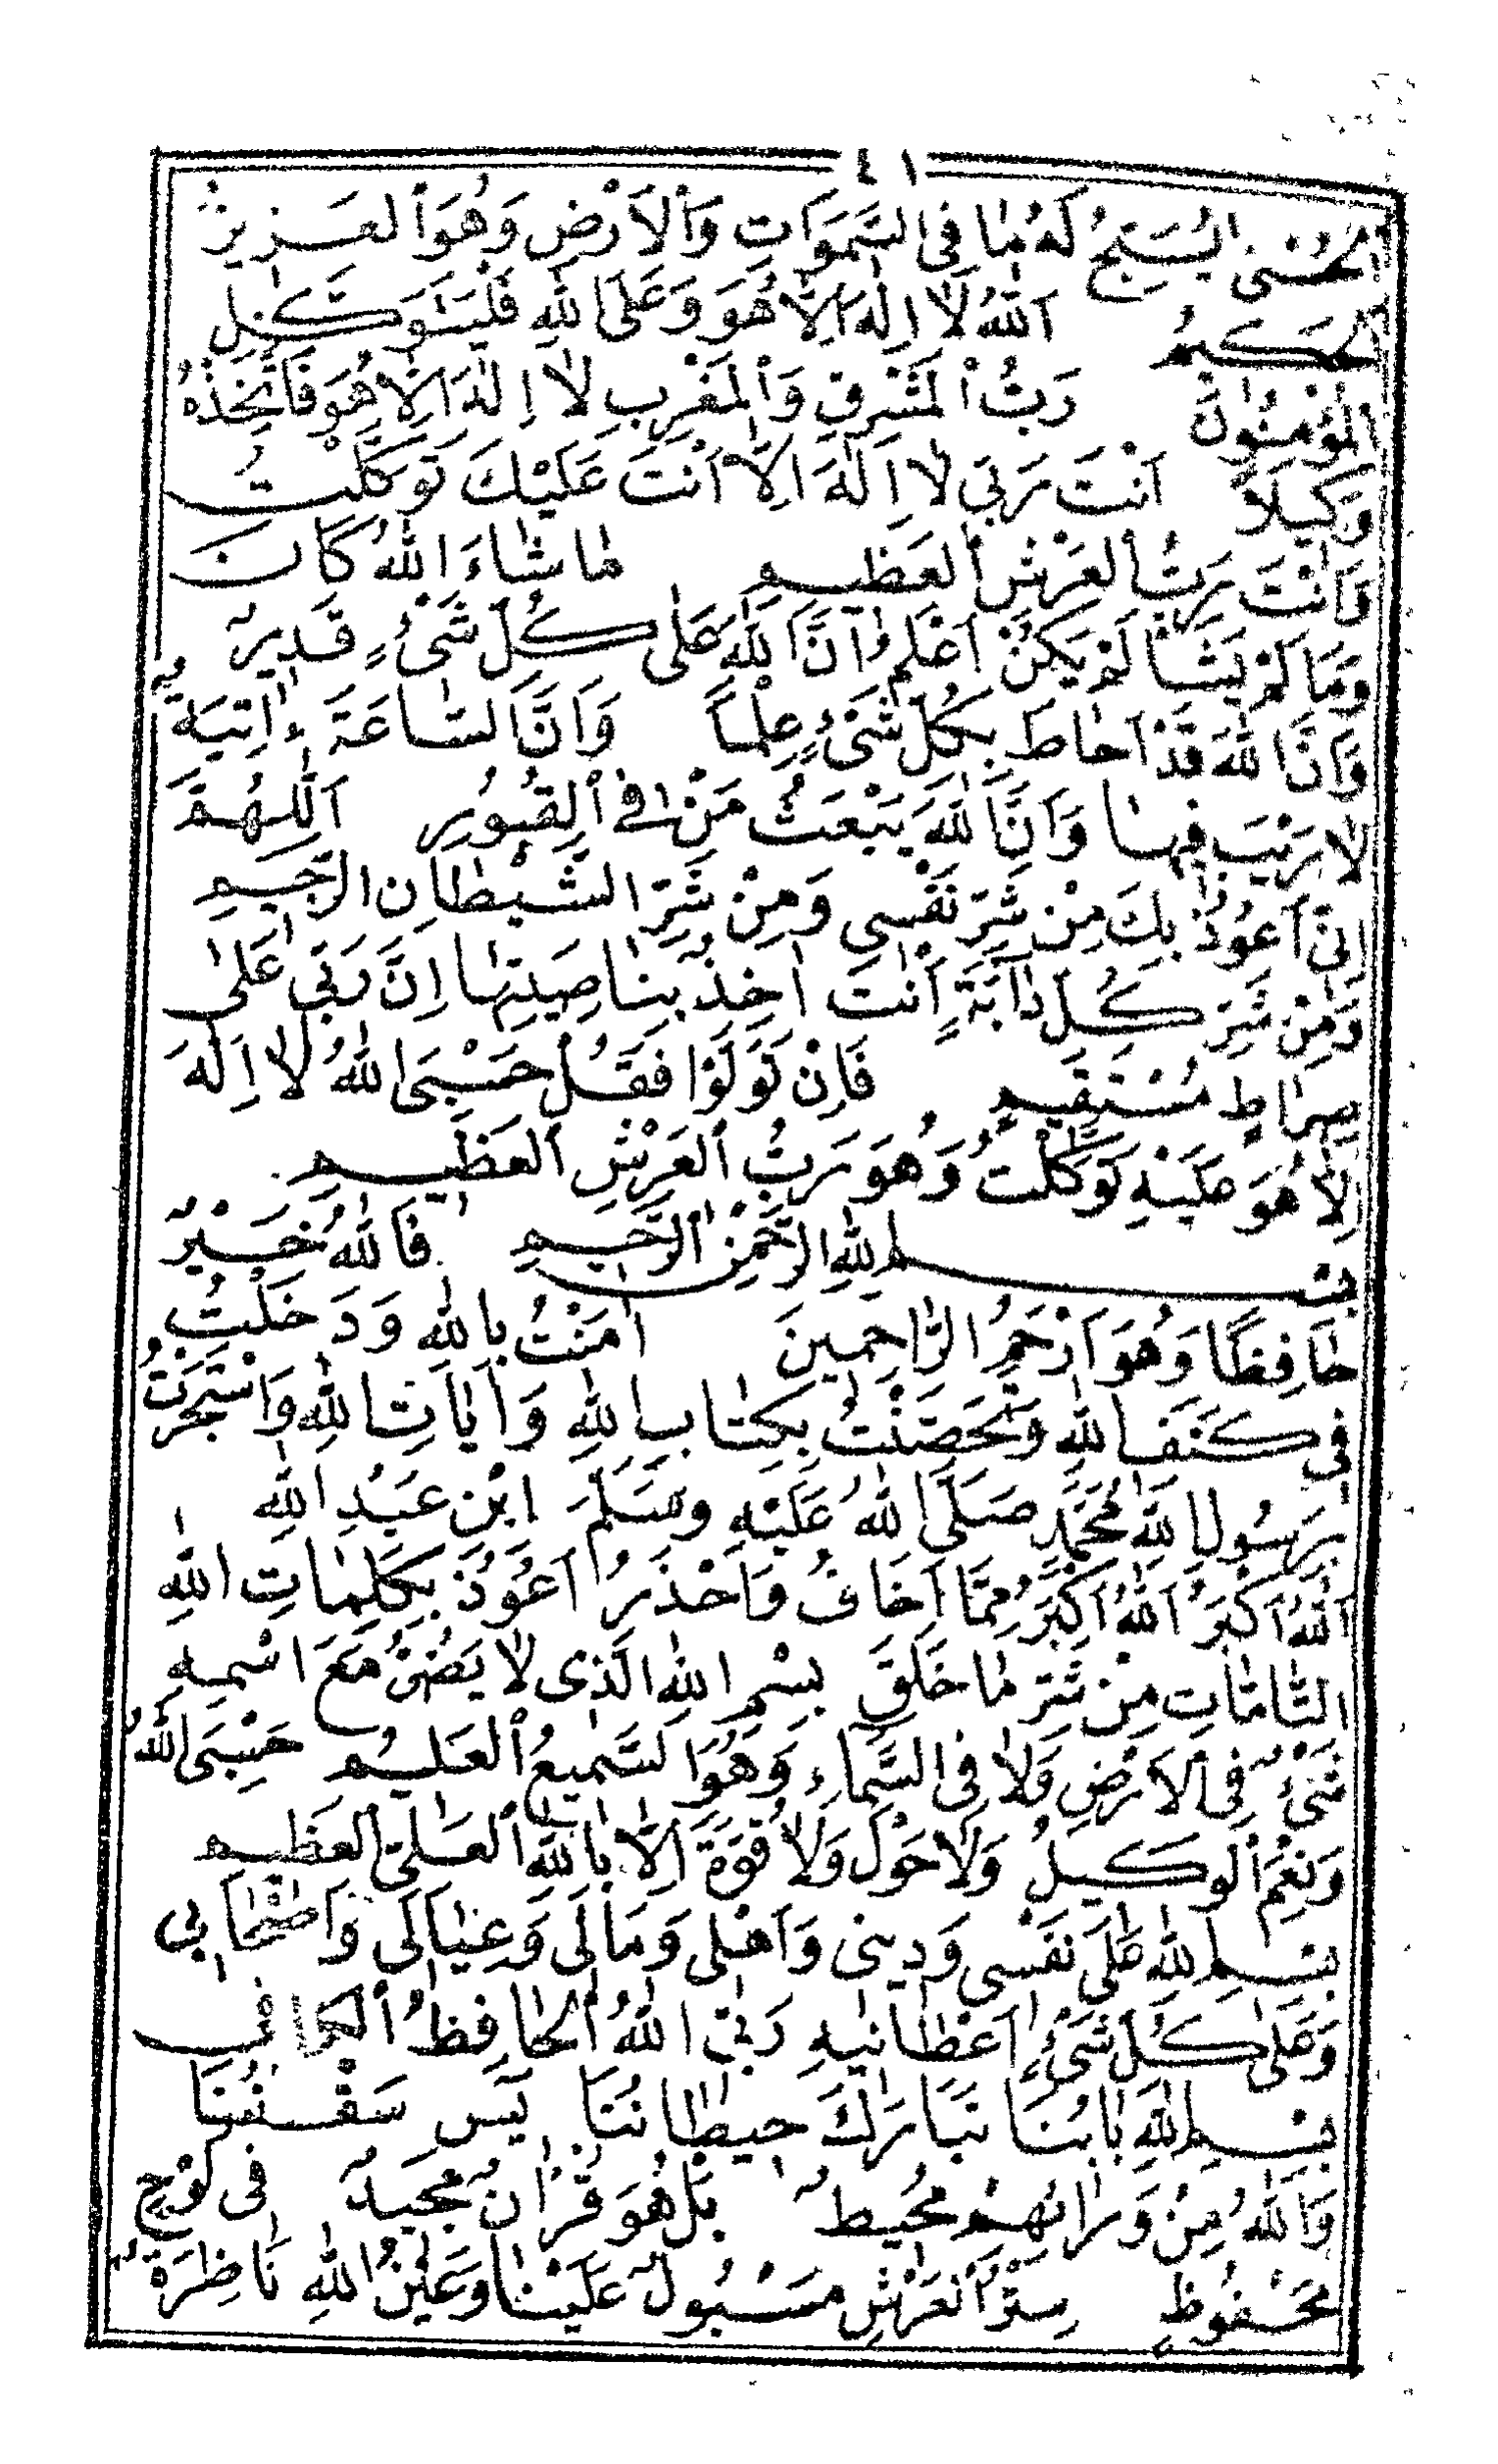 ٤١
اَلْحُسْنٰى يُسَبِّحُ لَهُ مٰا فِى السَّمٰوَاتِ وَاْلاَرْضِ وَهُوَ اْلعَزِيزُ
الْحَكِيمُ اَللّٰهُ لَا اِلٰهَ اِلاّٰ هُوَ وَعَلَى اللّٰهِ فَلْيَتَوَكَّلِ
الْمُؤْمِنُونَ رَبُّ اْلمَشْرِقِ وَاْلمَغْرِبِ لاٰ اِلٰهَ اِلاّٰ هُوَ فَاتَّخِذْهُ
وَكِيلاً اَنْتَ رَبِّى لاٰ اِلٰهَ اِلاّٰ اَنْتَ عَلَيْكَ تَوَكَّلْتُ
وَاَنْتَ رَبُّ اْلعَرْشِ اْلعَظِيمِ مٰا شٰاءَ اللّٰهُ كٰانَ
وَمٰا لَمْ يَشَأْ لَمْ يَكُنْ اَعْلَمُ اَنَّ اللّٰهَ عَلٰى كُلِّ شَىْءٍ قَدِيرٌ
وَاَنَّ اللّٰهَ قَدْ اَحٰاطَ بِكُلِّ شَىْءٍ عِلْماً وَاَنَّ السّٰاعَةَ ءٰاتِيَةٌ
لاٰرَيْبَ فِيهٰا وَاَنَّ اللّٰهَ يَبْعَثُ مَنْ فِى اْلقُبُورِ اَللّٰهُمَّ
اِنِّى اَعُوذُ بِكَ مِنْ شَرِّ نَفْسِى وَمِنْ شَرِّ الشَّيْطٰانِ الرَّجِيمِ
وَمِنْ شَرِّ كُلِّ دٰابَّةٍ اَنْتَ اٰخِذٌ بِنٰاصِيَتِهٰا اِنَّ رَبِّى عَلٰى
صِرٰاطٍ مُسْتَقِيمٍ فَاِنْ تَوَلَّوْا فَقُلْ حَسْبِىَ اللّٰهُ لاٰ اِلٰهَ
اِلاّٰ هُوَ عَلَيْهِ تَوَكَّلْتُ وَهُوَ رَبُّ اْلعَرْشِ اْلعَظِيمِ
بِسْمِ اللّٰهِ الرَّحْمٰنِ الرَّحِيمِ فَاللّٰهُ خَيْرٌ
حٰافِظًا وَهُوَ اَرْحَمُ الرّٰاحِمِينَ اٰمَنْتُ بِاللّٰهِ وَدَخَلْتُ
فِى كَنَفِ اللّٰهِ وَتَحَصَّنْتُ بِكِتٰابِ اللّٰهِ وَاٰيٰاتِ اللّٰهِ وَاسْتَجَرْتُ
بِرَسُولِ اللّٰهِ مُحَمَّدٍ صَلَّى اللّٰهُ عَلَيْهِ وَسَلَّمَ ابْنِ عَبْدِ اللّٰهِ
اَللّٰهُ اَكْبَرُ اَللّٰهُ اَكْبَرُ مِمَّا اَخَافُ وَاَحْذَرُ اَعُوذُ بِكَلِمٰاتِ اللّٰهِ
التّٰامّٰاتِ مِنْ شَرِّ مٰا خَلَقَ بِسْمِ اللّٰهِ الَّذِى لاٰ يَضُرُّ مَعَ اسْمِهِ
شَىْءٌ فِى اْلاَرْضِ وَلاٰ فِى السَّمٰاءِ وَهُوَ السَّمِيعُ اْلعَلِيمُ حَسْبِىَ اللّٰهُ
وَنِعْمَ اْلوَكِيلُ وَلاٰ حَوْلَ وَلاٰ قُوَّةَ اِلاّٰ بِاللّٰهِ اْلعَلِىِّ اْلعَظِيمِ
بِسْمِ اللّٰهِ عَلٰى نَفْسِى وَدِينِى وَاَهْلِى وَمَالِى وَعِيٰالِى وَاَصْحٰابِى
وَعَلٰى كُلِّ شَىْءٍ اَعْطٰانِيهِ رَبِّى اللّٰهُ الْحٰافِظُ الْكٰافِى
بِسْمِ اللّٰهِ بٰابُنَا تَبَارَكَ حِيطٰانُنَا يٰسۤ سَقْفُنَا
وَاللّٰهُ مِنْ وَرٰائِهِمْ مُحِيطٌ بَلْ هُوَ قُرْاٰنٌ مَجِيدٌ فِى لَوْحٍ
مَحْفُوظٍ سِتْرُ اْلعَرْشِ مَسْبُولٌ عَلَيْنٰا وَعَيْنُ اللّٰهِ نَاظِرَةٌ